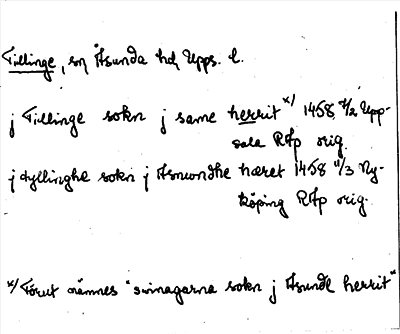 Tillinge, sn Åsunda hd, Upps. l.
j Tillinge sokn j same herrit x/ 1458 7/2 Upp-
sala RAp orig.
j dyllinghe sokn j Asmundhe hæret 1458 11/3 Ny-
köping RAp orig.
x/ Förut nämnes "swinagarna sokn j Asunde herrit"